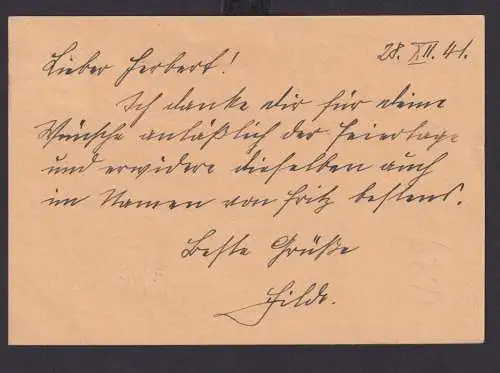 28. XII. 41.
Lieber Herbert!
Ich danke dir für deine
Wünsche anläßlich der Feiertage
und erwidere dieselben auch
im Namen von Fritz bestens.
Beste Grüße
Hilde.